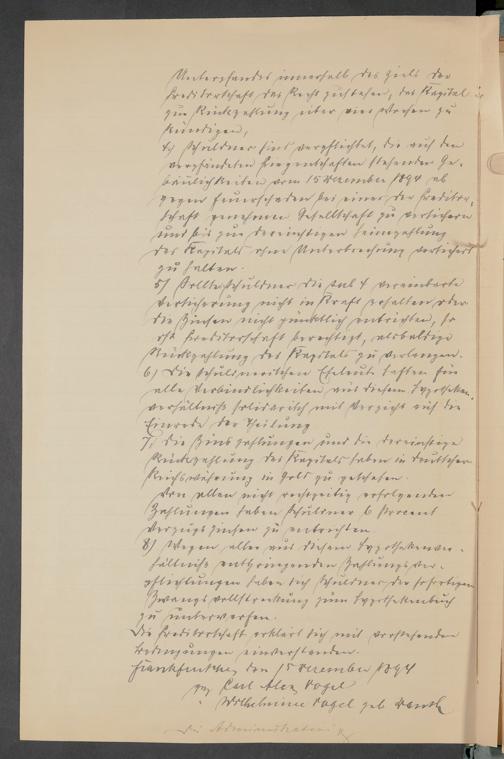 Unterpfandes innerhalb des Ziels der
Kreditorschaft das Recht zustehen, das Kapital
zur Rückzahlung über vier Wochen zu
kündigen,
4) Schuldner sind verpflichtet, die auf den
verpfändeten Liegenschaften stehenden Ge-
bäulichkeiten vom 15 Dezember 1894 ab
gegen Feuerschaden bei einer der Kreditor-
schaft genehmen Gesellschaft zu versichern
und bis zur dereinstigen Heimzahlung
des Kapitals ohne Unterbrechung versichert
zu halten.
5) Sollte Schuldner die sub 4 vereinbarte
Versicherung nicht in Kraft erhalten oder
die Zinsen nicht pünktlich entrichten, so
ist Kreditorschaft berechtigt, alsbaldige
Rückzahlung des Kapitals zu verlangen.
6) Die schuldnerischen Eheleute haften für
alle Verbindlichkeiten aus diesem Hypotheken-
verhältniß solidarisch mit Verzicht auf die
Einrede der Theilung
7) Die Zinszahlungen und die dereinstige
Rückzahlung des Kapitals haben in deutscher
Reichswährung in Gold zu geschehen.
Von allen nicht rechtzeitig erfolgenden
Zahlungen haben Schuldner 6 Procent
Verzugszinsen zu entrichten
8) Wegen aller aus diesem Hypothekenver-
hältniß entspringenden Zahlungsver-
pflichtungen haben sich Schuldner der sofortigen
Zwangsvollstreckung zum Hypothekenbuch
zu unterwerfen.
Die Kreditorschaft erklärt sich mit vorstehenden
Bedingungen einverstanden.
Frankfurt, den 15 Dezember 1894
gez Carl Alex Vogel
" Wilhelmine Vogel geb
Die Administration